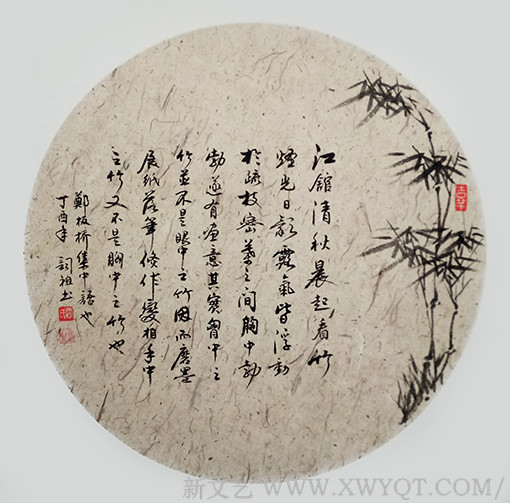 江舘清秋晨起看竹
煙光日影露氣皆浮動
於疏枝密葉之間胸中勃
勃遂有畫意其實胸中之
竹並不是眼中之竹因而磨墨
展紙落筆倏作變相手中
之竹又不是胸中之竹也
鄭板橋集中語也
丁酉年 詞祖书
新文艺 WWW.XWYQT.COM/